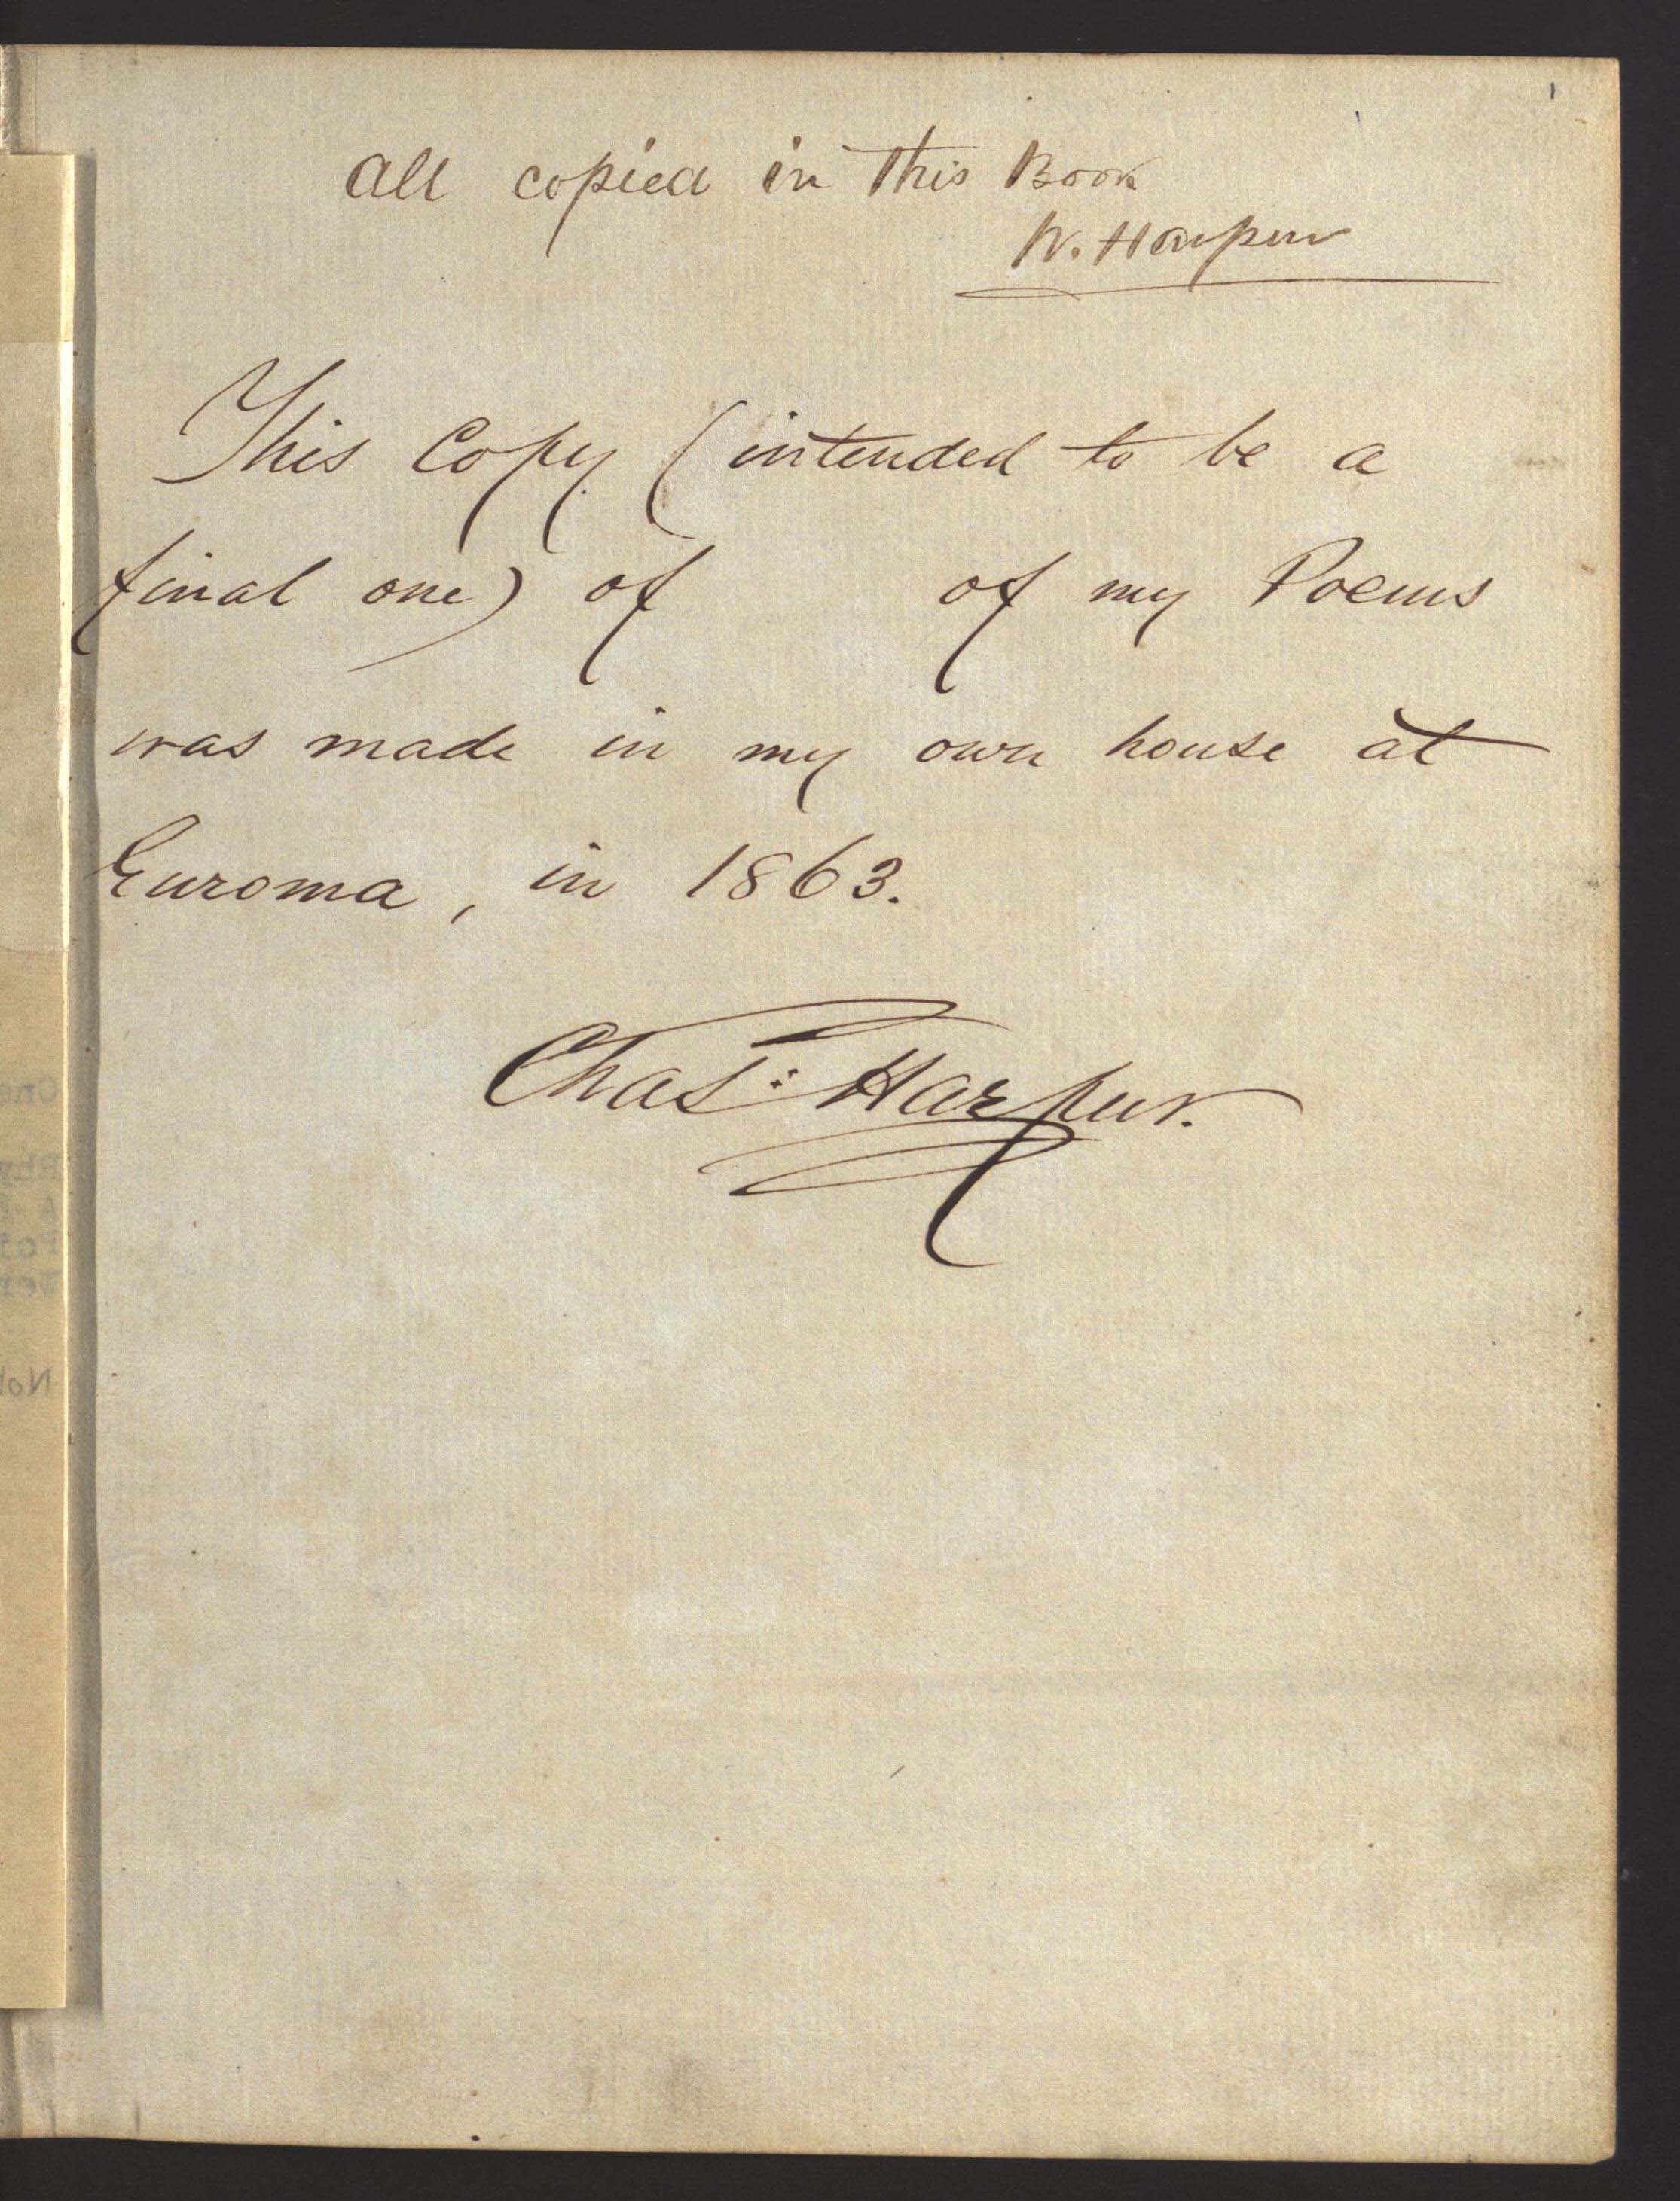 1
all copied in this Book
W. Harpur
This Copy (intended to be a
final one) of of my Poems
was made in my own house at
Euroma, in 1863.
Chas: Harpur.